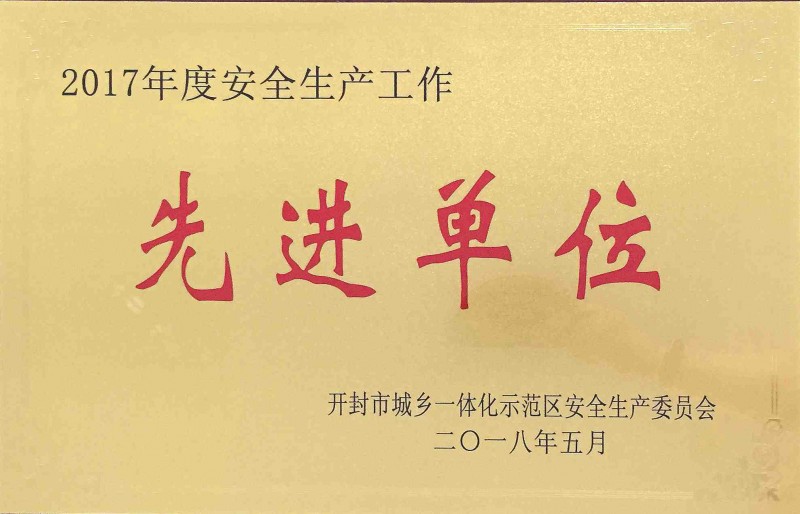 2017年度安全生产工作
先进单位
开封市城乡一体化示范区安全生产委员会
二〇一八年五月